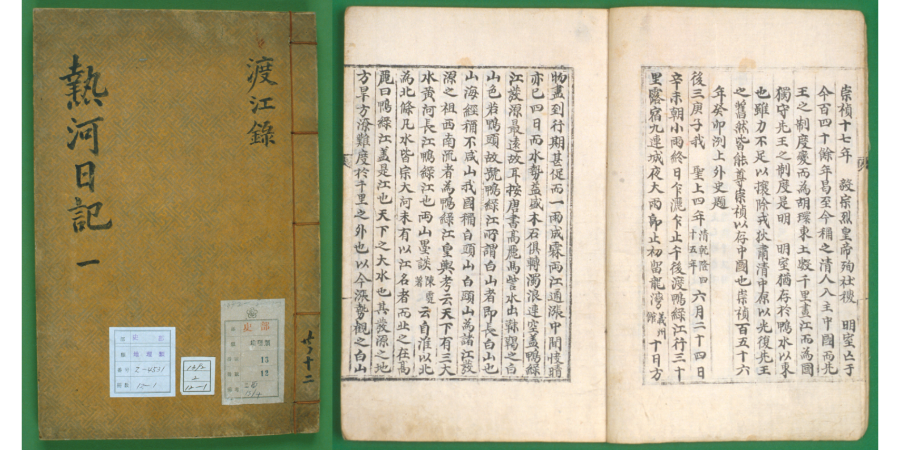 渡江錄
熱河日記 一
共十二
12-1
崇禎十七年 毅宗烈皇帝殉社稷 明室亡于
今百四十餘年曷至今稱之清人入主中國而先
王之制度變而為胡環東土數千里畫江而為國
獨守先王之制度是明 明室猶存於鴨水以東
也雖力不足以攘除戎狄肅清中原以光復先王
之舊然皆能尊崇禎以存中國也崇禎百五十六
年癸卯洌上外史題
後三庚子我 聖上四年清乾隆四十五年六月二十四日
辛未朝小雨終日乍灑乍止午後渡鴨綠江行三十
里露宿九連城夜大雨即止初留龍灣義州館十日方
物盡到行期甚促而一雨成霖兩江通漲中間快晴
亦已四日而水勢益盛木石俱轉濁浪連空盖鴨綠
江發源最遠故耳按唐書高麗馬訾水出靺鞨之白
山色若鴨頭故號鴨綠江所謂白山者即長白山也
山海經稱不咸山我國稱白頭山白頭山為諸江發
源之祖西南流者為鴨綠江皇輿考云天下有三大
水黄河長江鴨綠江也兩山墨談陳霆著云自淮以北
為北條凡水皆宗大河未有以江名者而北之在高
麗曰鴨綠江盖是江也天下之大水也其發源之地
方旱方潦難度於千里之外也以今漲勢觀之白山